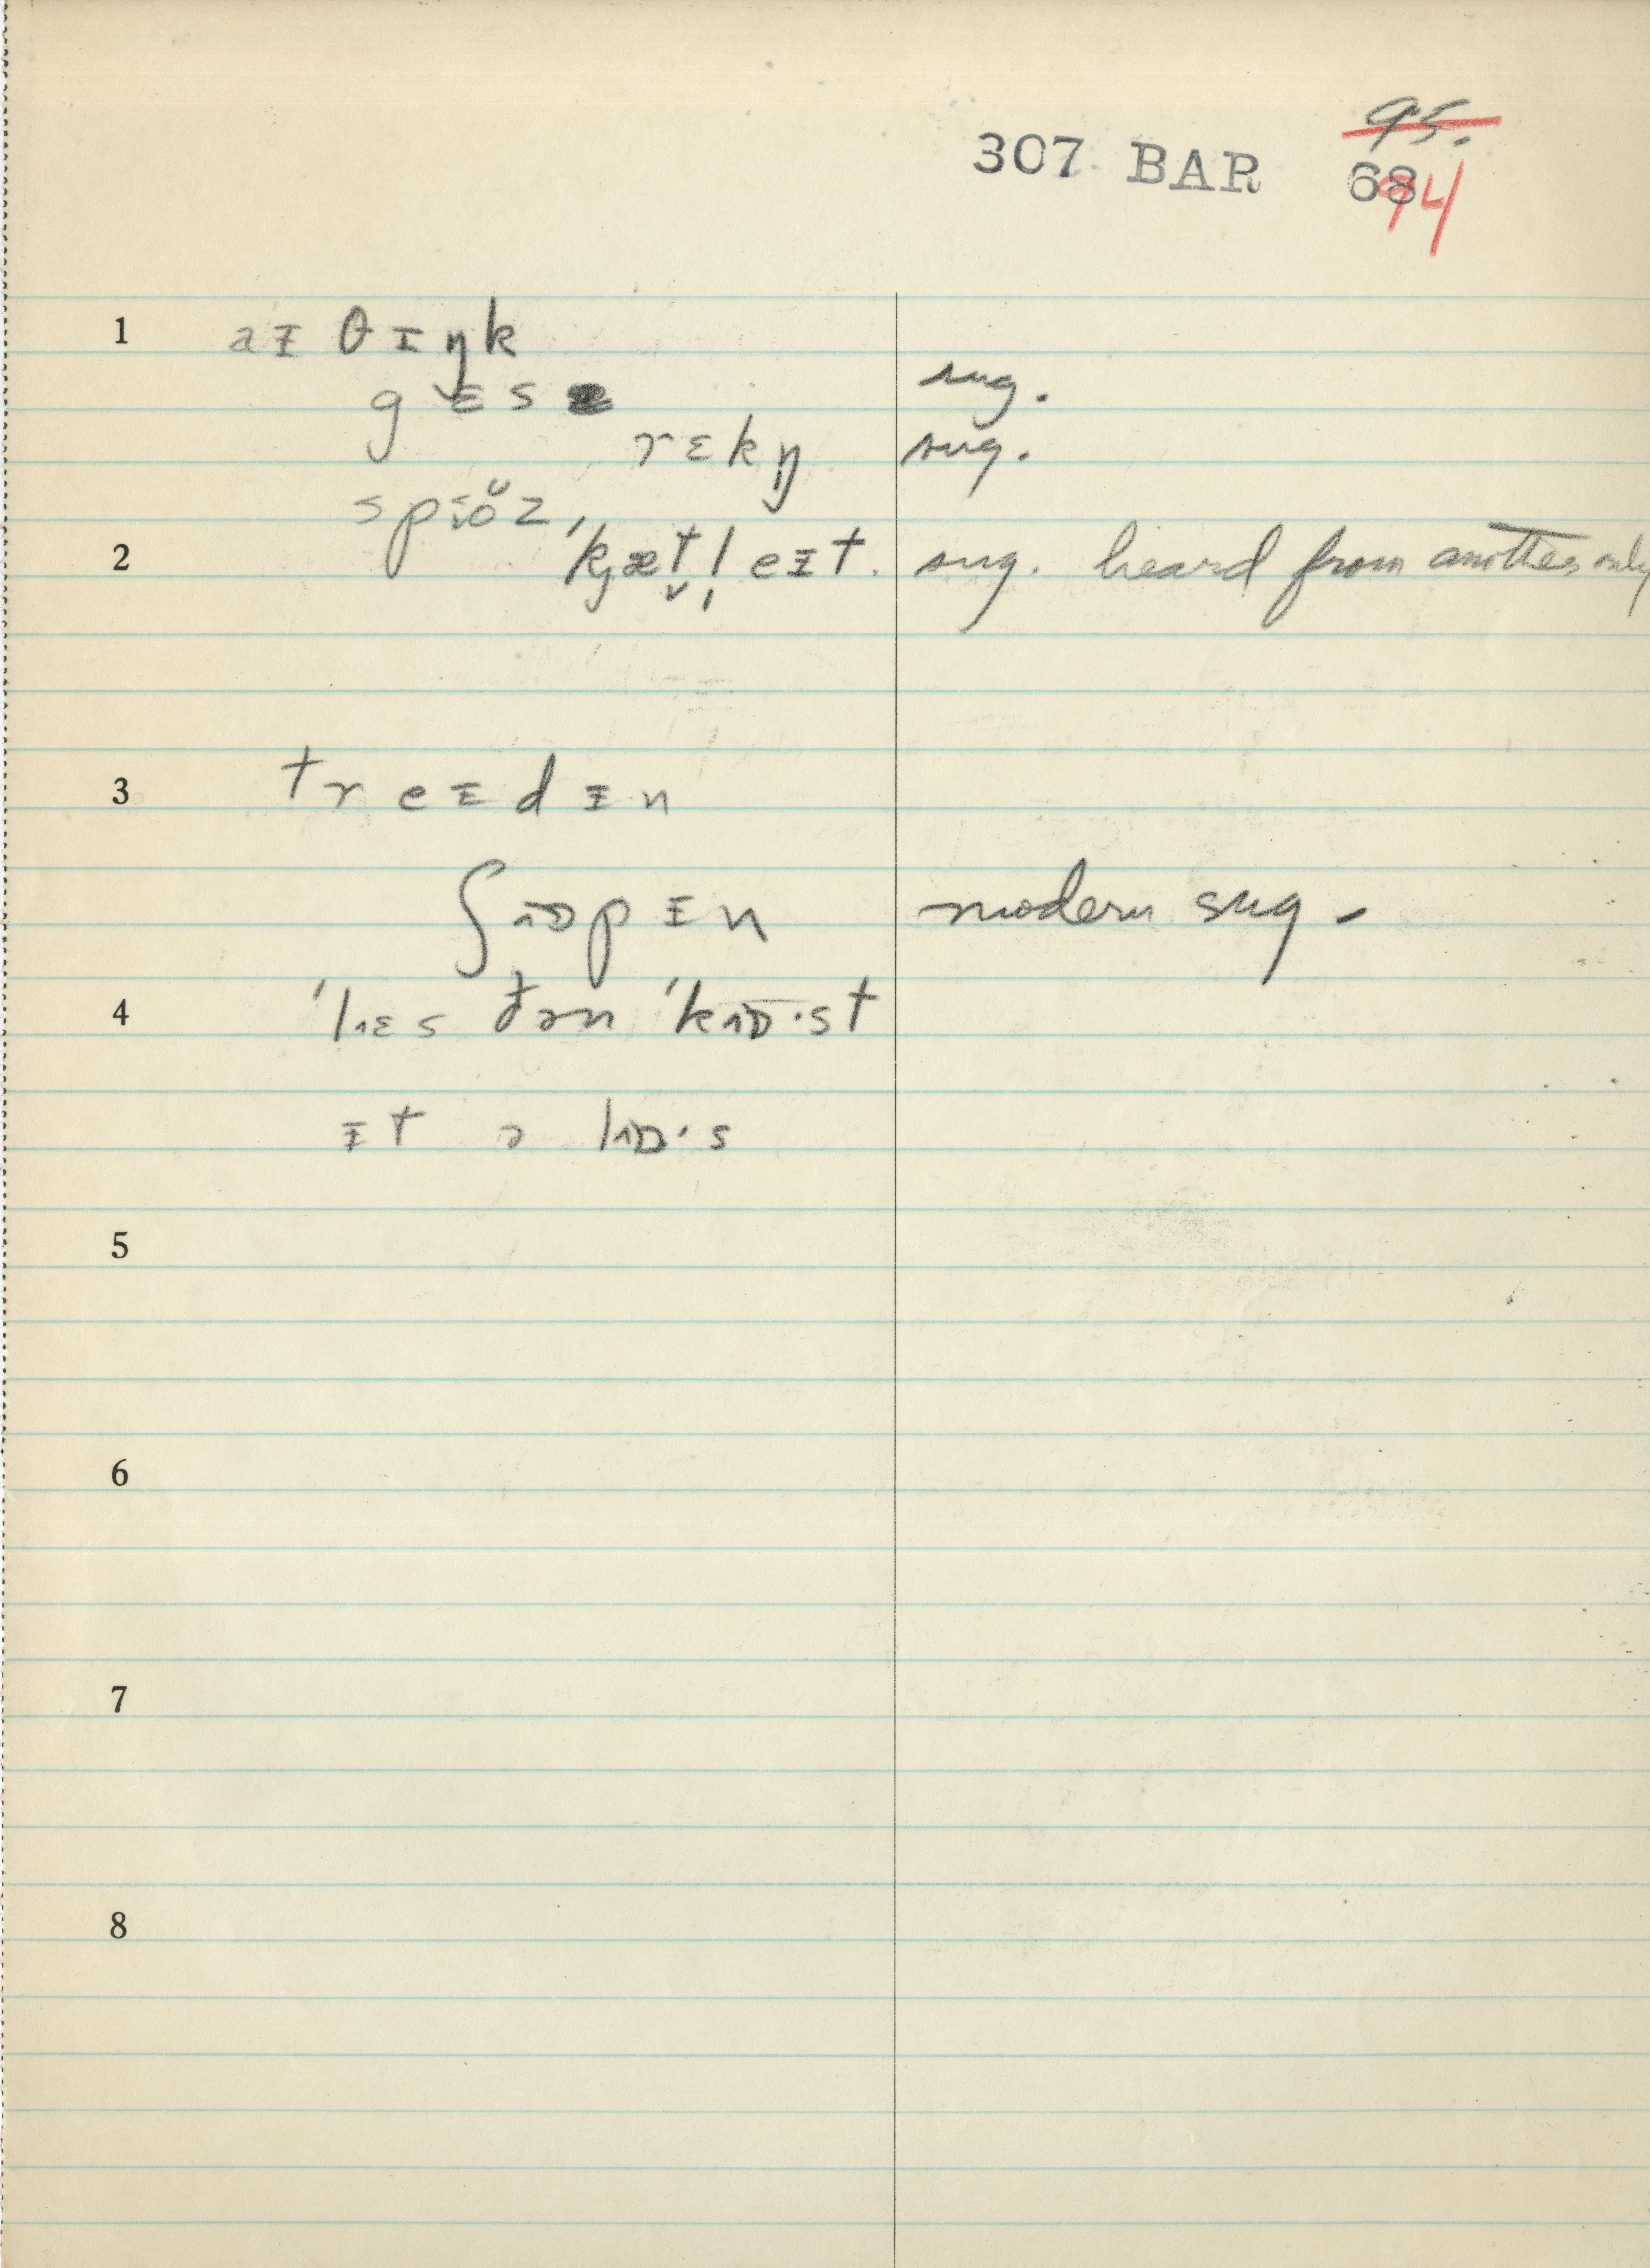 95.
307 BAR 68 94
1 aᵻ θɪŋk
gɛs sug.
rɛkŋ sug.
spɪ̵ŏz
2 ˈkjæt̬l̩ eᵻt. sug. heard from another only
3 treᵻdᵻn
ʃɒpᵻn modern sug.
4 ˈlɛs ðən ˈkɒ·st
ᵻt ə lɒ·s
5
6
7
8